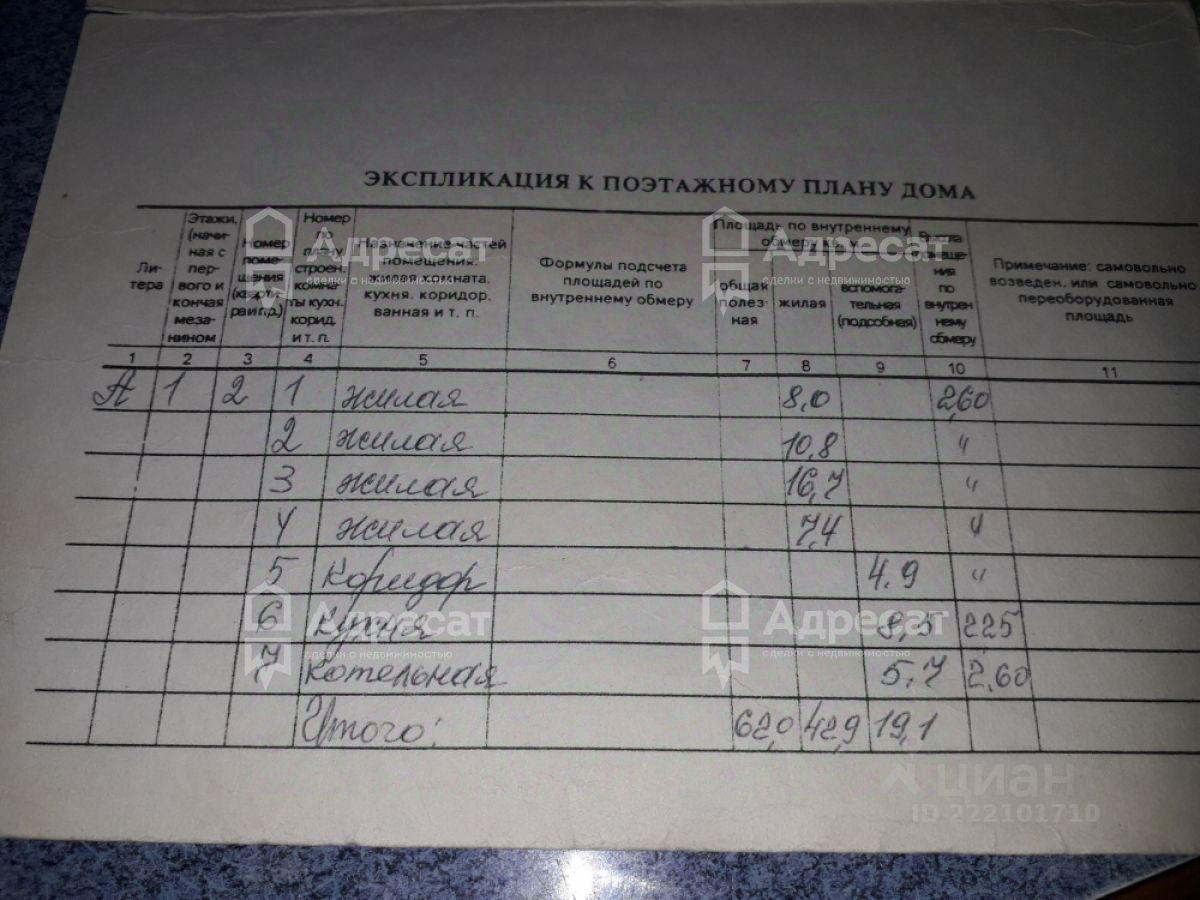 ЭКСПЛИКАЦИЯ К ПОЭТАЖНОМУ ПЛАНУ ДОМА
Ли-
тера
Этажи,
(начи-
ная с
пер-
вого и
кончая
меза-
нином
Номер
поме-
щения
(кварти-
ра и т.д.)
Номер
по
плану
строен.
комна-
ты кухн.
корид.
и т. п.
Назначение частей
помещения:
жилая комната,
кухня, коридор,
ванная и т. п.
Формулы подсчета
площадей по
внутреннему обмеру
Площадь по внутреннему
обмеру кв. м
общая
полез-
ная
жилая
вспомога-
тельная
(подробная)
Высота
помеще-
ния
по
внутрен
нему
обмеру
Примечание: самовольно
возведен. или самовольно
переоборудованная
площадь
1 2 3 4 5 6 7 8 9 10 11
А 1 2 1 жилая 8,0 2,60
2 жилая 10,8 "
3 жилая 16,7 "
4 жилая 7,4 "
5 коридор 4.9 "
6 кухня 8,5 2,25
7 котельная 5.7 2,60
Итого: 62,0 42,9 19,1
Адресат
сделки с недвижимостью
Адресат
сделки с недвижимостью
Адресат
сделки с недвижимостью
Адресат
сделки с недвижимостью
циан
ID 222101710